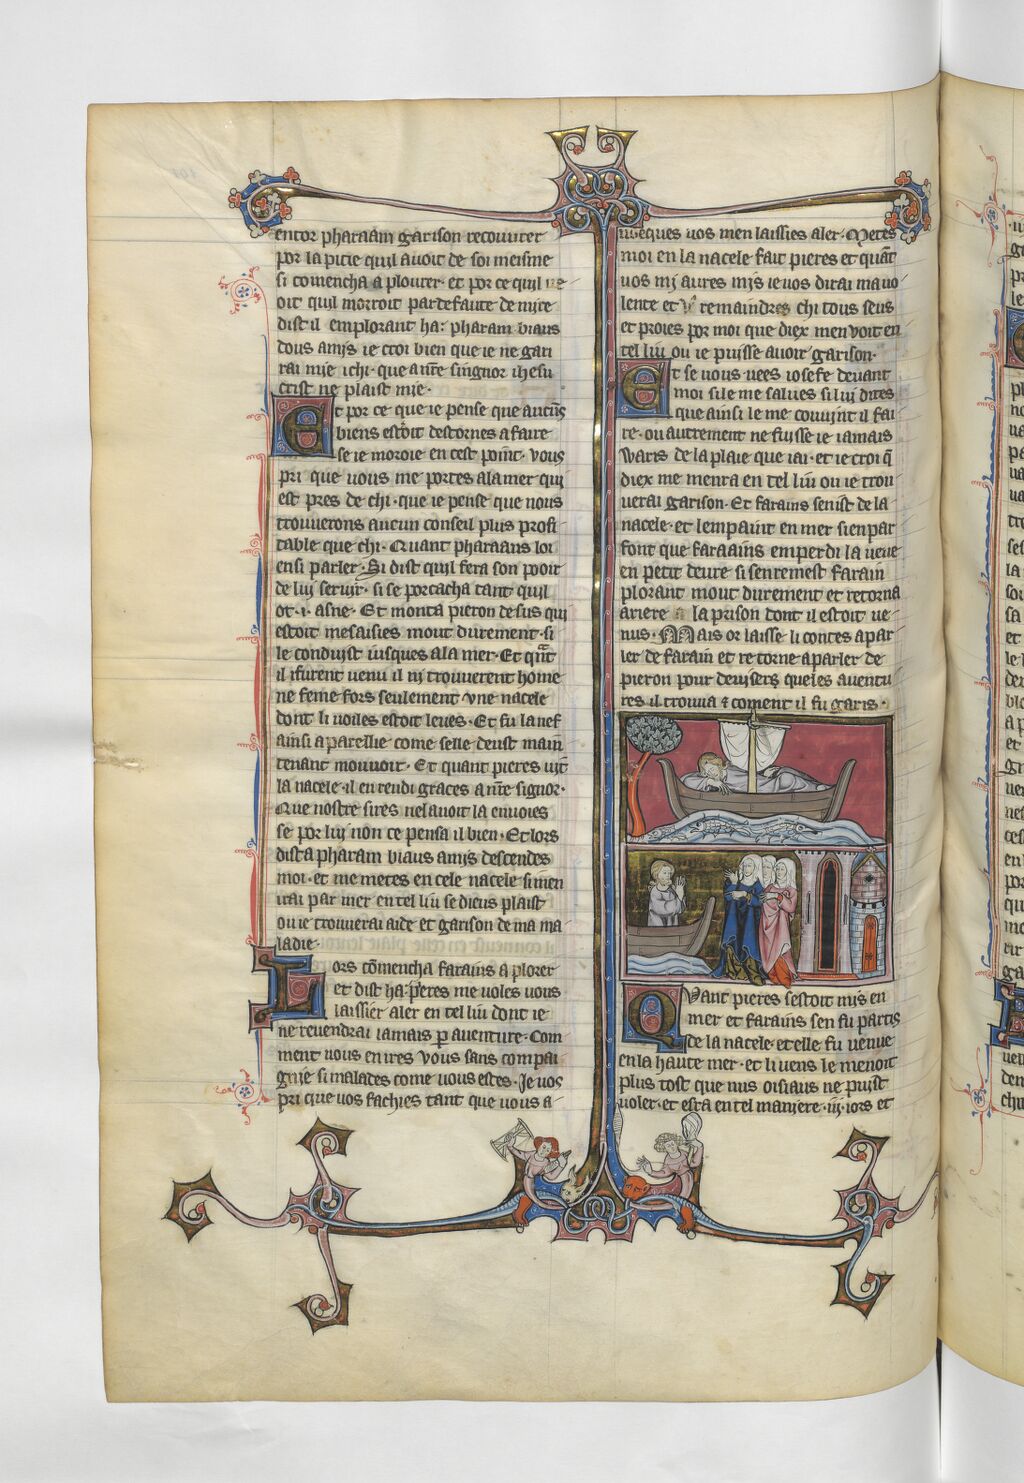 entor pharaam garison recouurer
por la pitie quil auoit de soi meisme
si comencha a plourer. et por ce quil
oit quil morroit par defaute de mire
dist il emplorant ha: pharam biaus
dous amis ie croi bien que ie ne gari
rai mie ichi. que a nr̄e singnor ihesu
crist ne plaist mie.
Et por ce que ie pense que aucūs
biens estoit destornes a faire
se ie moroie en cest point. vous
pri que vous me portes a la mer qui
est pres de chi. que ie pense que nous
trouuerons aucun conseil plus profi
table que chi. Quant pharaans loi
ensi parler. Si dist quil fera son pooir
de lui seruir. si se porcacha tant quil
ot .i. asne. Et monta pieron desus qui
estoit mesaisies mout durement. si
le conduist iusques a la mer. Et qn̄t
il i furent venu il ni trouuerent home
ne feme fors seulement vne nacele
dont li voiles estoit leues. Et fu la nef
ainsi aparellie come selle deust main
tenant mouuoir. Et quant pieres vit
la nacele. il en rendi graces a nr̄e signor.
Que nostre sires ne lauoit la enuoies
se por lui non ce pensa il bien. Et lors
dist a pharam biaus amis descendes
moi. et me metes en cele nacele si men
irai par mer en tel liu se dieus plaist
ou ie trouuerai aide et garison de ma ma
ladie.
Lors cōmencha farains a plorer
et dist ha. pieres me voles vous
laissier aler en tel liu dont ie
ne reuendrai iamais p auenture. Com
ment vous en ires vous sans compai
gnie si malades come vous estes. Je vos
pri que vos fachies tant que vous a
uueques vos men laissies aler. Metes
moi en la nacele fait pieres et quāt
vos mi aures mis ie vos dirai ma vo
lente et remaindres chi tous seus
et proies por moi que diex men voit en
tel liu ou ie puisse auoir garison.
Et se vous vees iosefe deuant
moi si le me salues si lui dites
que ainsi le me couuint il fai
re. ou autrement ne fuisse ie iamais
waris de la plaie que iai. et ie croi q̄
diex me menra en tel liu ou ie trou
uerai garison. Et farains senist de la
nacele. et lempaint en mer si en par
font que faraains emperdi la veue
en petit deure si sentremest farain
plorant mout durement et retorna
ariere a la prison dont il estoit ve
nus. Mais or laisse li contes a par
ler de farain et retorne a parler de
pieron pour deuisers queles auentu
res il trouua & coment il fu garis.
Quant pieres sestoit mis en
mer et farains sen fu partis
de la nacele. et elle fu venue
en la haute mer. et li vens le menoit
plus tost que nus oisiaus ne puist
voler. et esta en tel maniere .iij. iors et